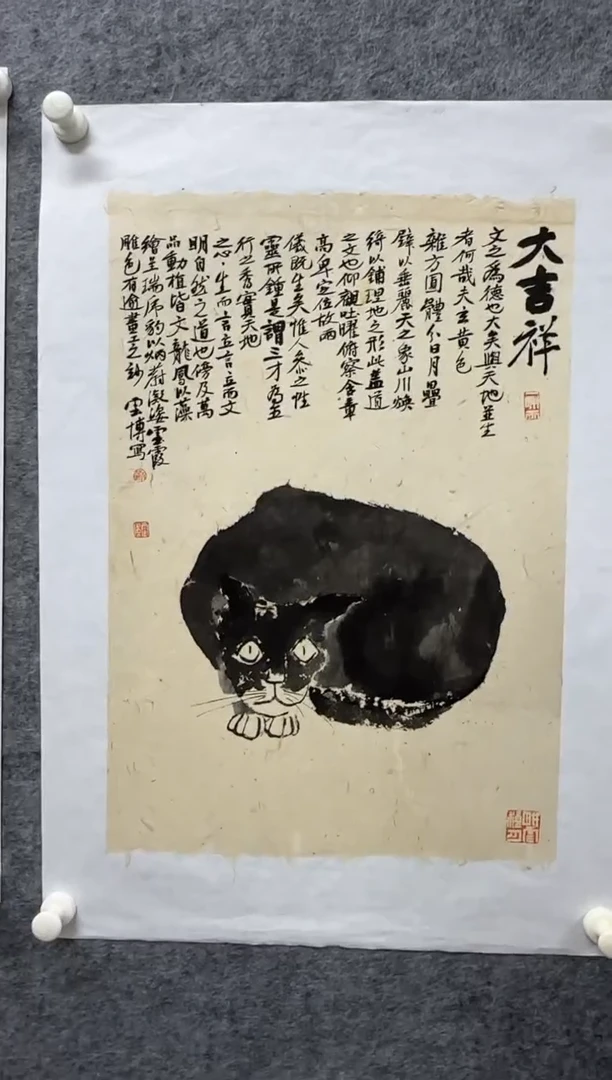 大吉祥
文之為德也大矣與天地並生
者何哉夫玄黄色
雜方圓體分日月疊
璧以垂麗天之象山川煥
綺以鋪理地之形此蓋道
之文也仰觀吐曜俯察含章
高卑定位故兩
儀既生矣惟人參之性
靈所鍾是謂三才為五
行之秀實天地
之心〻生而言立言立而文
明自然之道也傍及萬
品動植皆文龍鳳以藻
繪呈瑞虎豹以炳蔚凝姿雲霞
雕色有逾畫工之妙 雲博寫